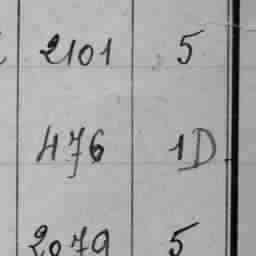 2101 5
476 1D
2079 5